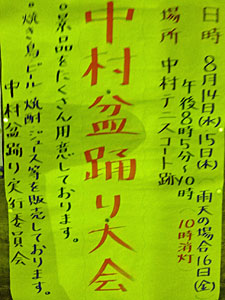 日時 8月14日(水)15日(木) 雨天の場合16日(金)
午後8時5分〜10時 10時消灯
場所 中村テニスコート跡
中村盆踊り大会
○景品をたくさん用意しております。
○焼き鳥ビール焼酎ジュース等を販売しております。
中村盆踊り実行委員会